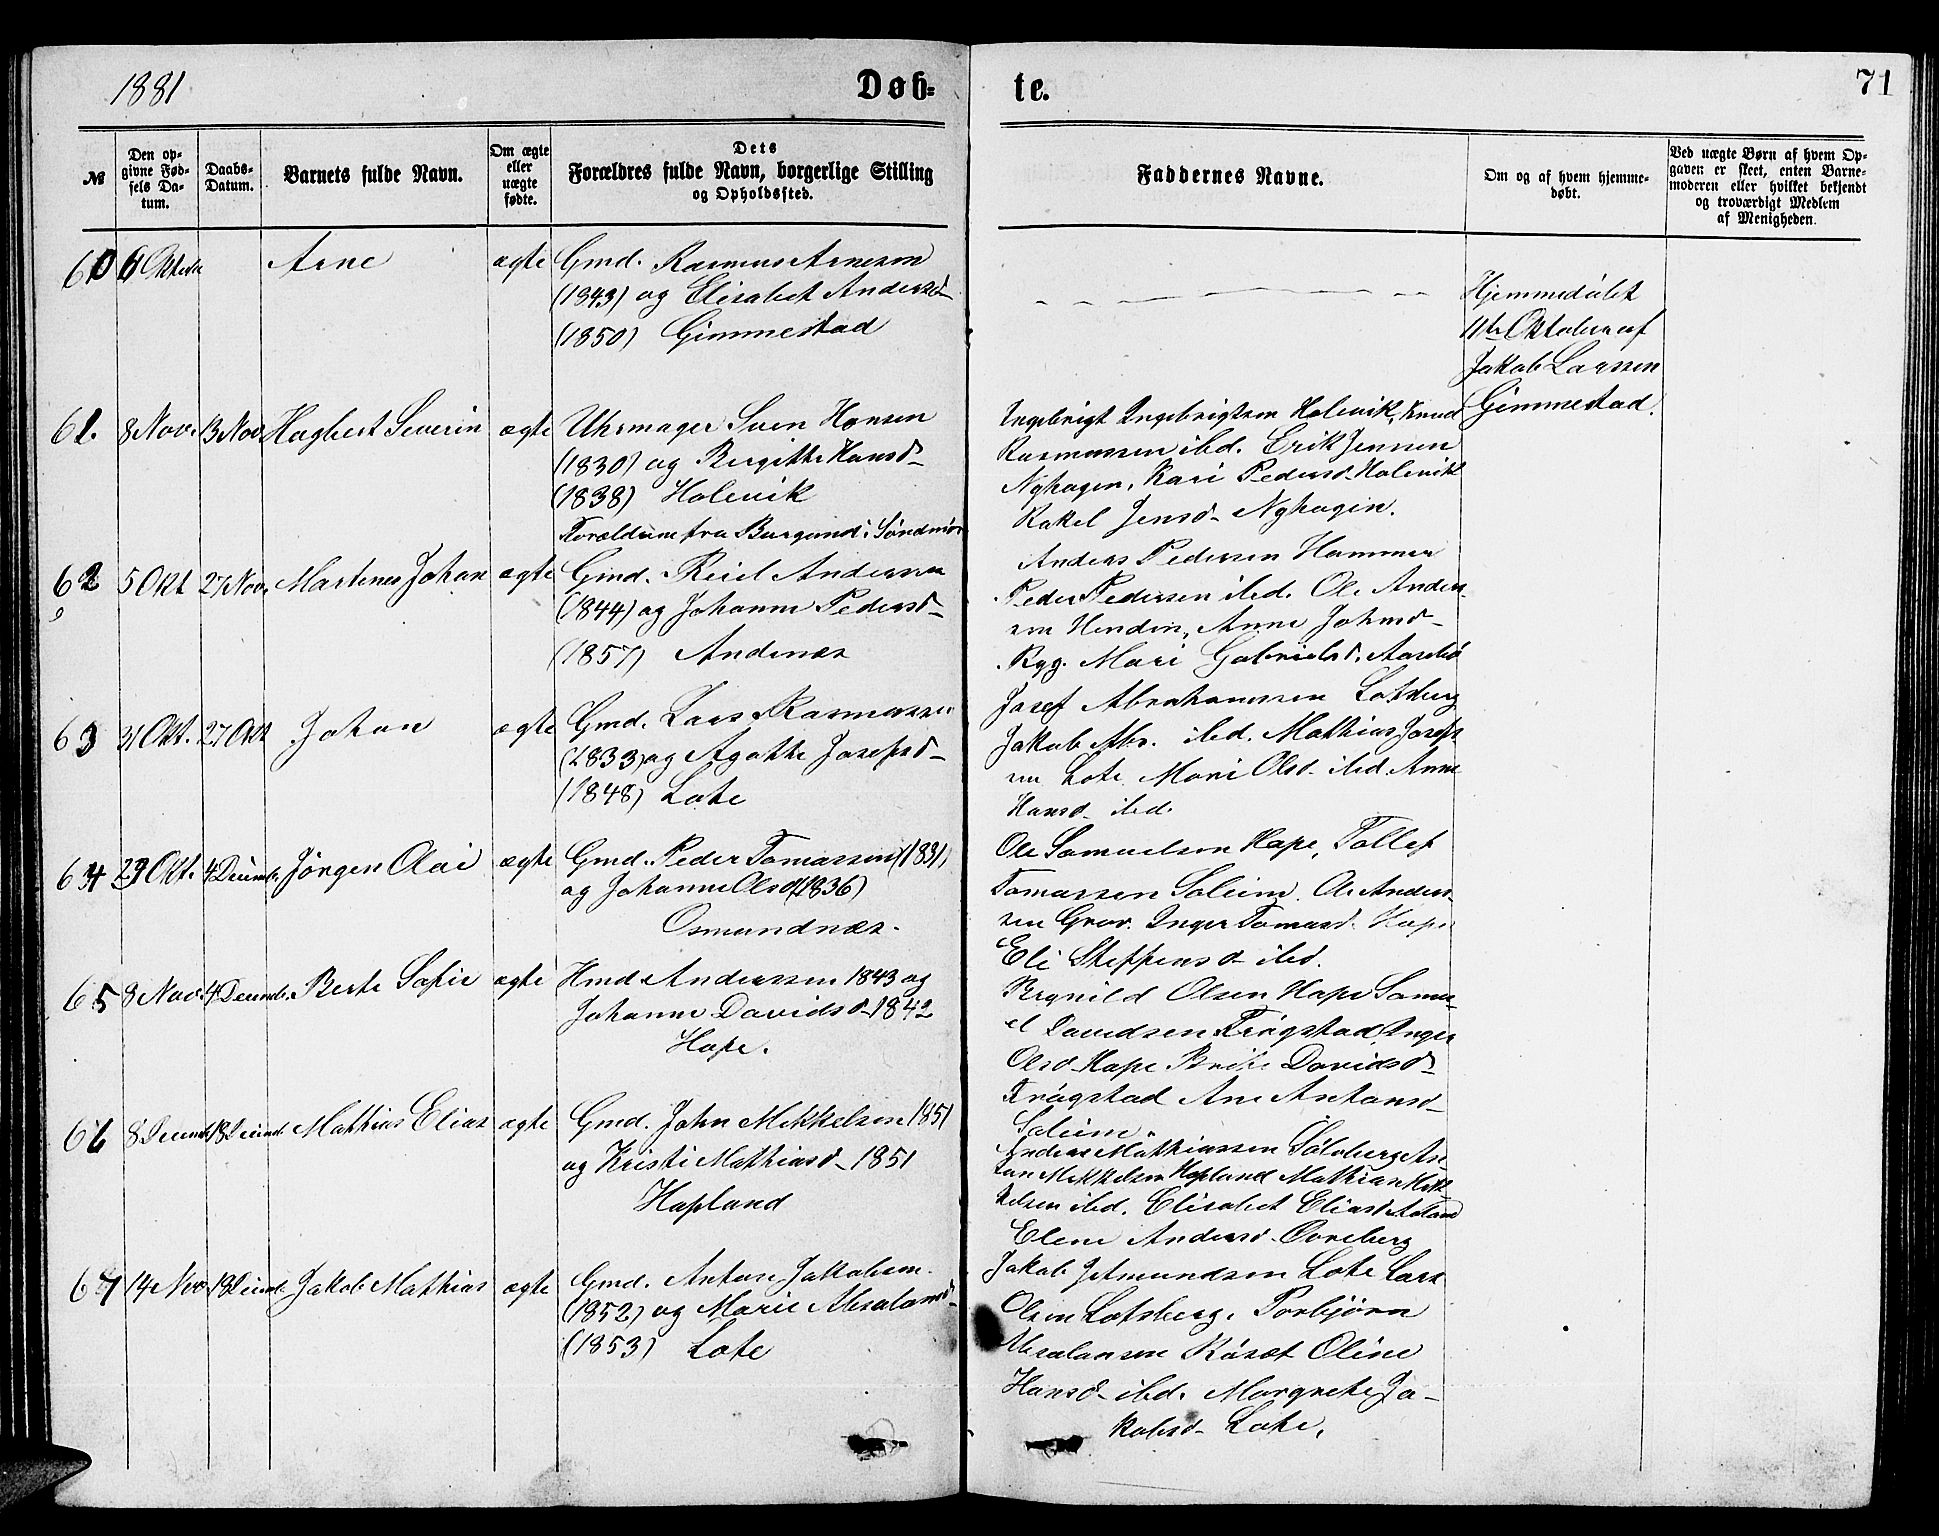 1881
Døb-
te.
71
№
Den op-
givne Fød-
sels Da-
tum.
Daabs-
Datum.
Barnets fulde Navn.
Om ægte
eller
uægte
fødte.
Dets
Forældres fulde Navn, borgerlige Stilling
og Opholdssted.
Faddernes Navne.
Om og af hvem hjemme-
døbt.
Ved uægte Børn af hvem Op-
gaven er skeet, enten Barne-
moderen eller hvilket bekjendt
og troværdigt Medlem
af Menigheden.
60 6 Oktober Arne ægte Gmd. Rasmus Arnesen
(1843) og Elisabet Andersd
(1850) Gimmestad
Hjemmedöbt
11te Oktober af
Jakob Larssen
Gimmestad.
61. 8 Nov. 13 Nov Hagbert Severin ægte Uhrmager Sven Hansen
(1830) og Birgitte Hansd-
(1838) Holevik
Forældrene fra Burgund i Söndmör
Ingebrigt Ingebrigtsen Holevik, Knud
Rasmussen ibd. Erik Jensen
Nyhagen, Kari Pedersd Holevik
Rakel Jensd- Nyhagen.
62 5 Okt 27 Nov. Martines Johan ægte Gmd. Reiel Andersen
(1844) og Johanne Pedersd-
(1857) Andenæs
Anders Pedersen Hammer
Peder Pedersen ibd. Ole Anders-
sen Henden, Anne Johnsd-
Ryg. Mari Gabrielsd. Aarebö
63 31 Okt. 27 Okt Johan ægte Gmd. Lars Rasmussen
(1833) og Agathe Josefsd-
(1848) Lote
Josef Abrahamssen Lotsberg
Jakob Abr. ibd. Mathias Josefs
sen Lote Mari Olsd- ibd Anne
Hansd- ibd.
64 29 Okt. 4 Decemb. Jörgen Olai ægte Gmd. Peder Tomassen (1831)
og Johanne Olsd (1836)
Osmundnæs.
Ole Samuelsen Hope, Tollef
Tomassen Soleim. Ole Anders-
sen Grov. Inger Tomasd. Hope
Eli Steffensd- ibd.
65 8 Nov. 4 Decemb. Berte Sofie ægte Hmd Anderssen 1843 og
Johanne Davidsd- 1842
Hope.
Olsen Hope Samu-
el Davidsen Frögstad Inger
Olsd- Hope Brite Davidsd-
Frögstad Ane Antonsd-
Soleim.
66 8 Decemb. 18 Decemb. Mathias Elias ægte Gmd. John Mikkelsen 1851
og Kristi Mathiasd- 1851
Hopland
Anders Mathiassen Sölvberg An-
ton Mikkelsen Hopland Mathias Mik-
kelsen ibd. Elisabet Eliasd
Elene Andersd- Övreberg
67 14 Nov 18 Decemb. Jakob Mathias ægte Gmd. Anton Jakobsen.
(1852) og Marie Absalonsd-
(1853) Lote
Jakob Jetmundsen Lote Lars
Olsen Lotsberg. Torbjörn
Absalonsen Röset Oline
Hansd- ibd. Margrete Ja-
kobsd- Lote.